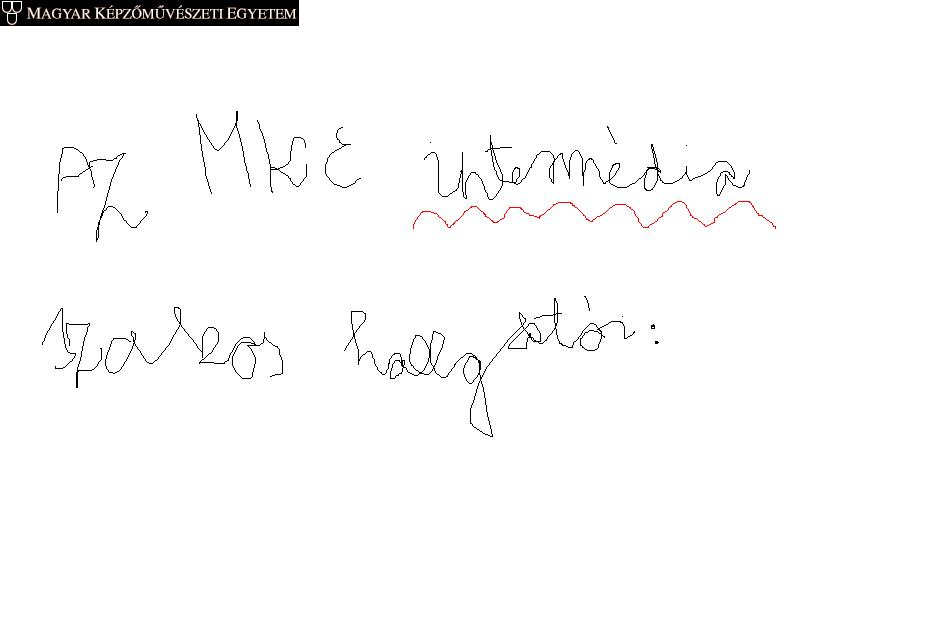 MAGYAR KÉPZŐMŰVÉSZETI EGYETEM
Az MKE intermédia
szakos hallgatói: